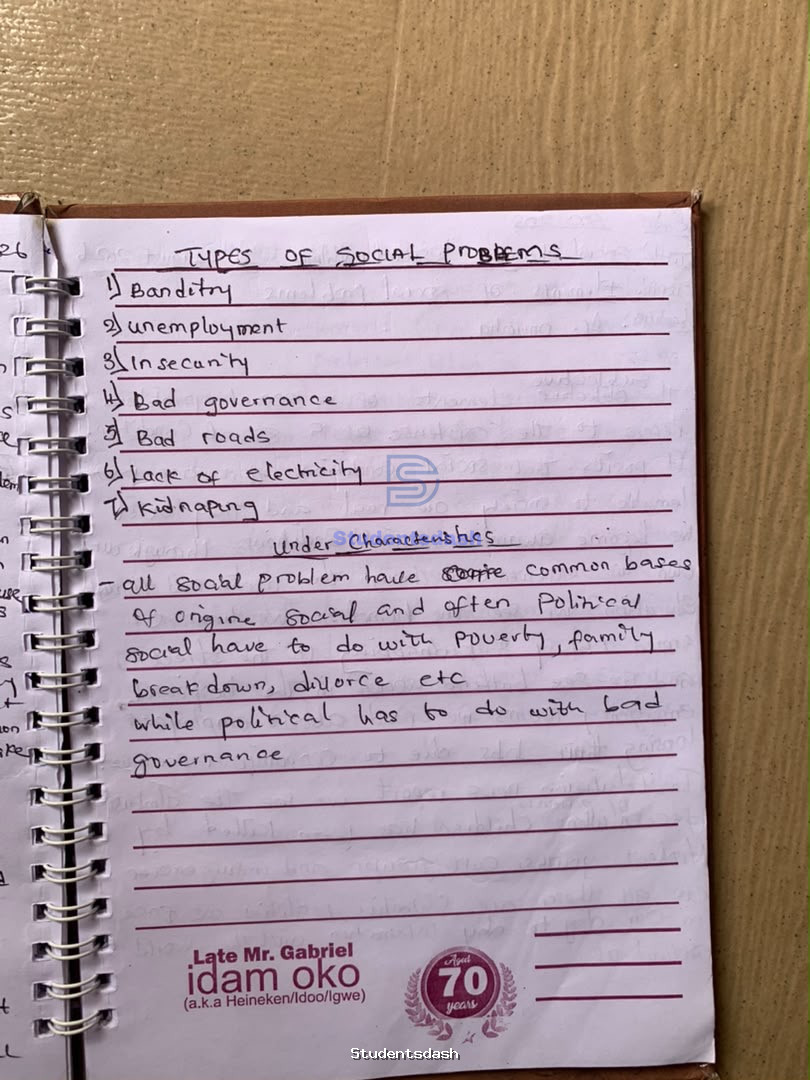 26
TYPES OF SOCIAL PROBLEMS
1) Banditry
2) unemployment
3) Insecurity
4) Bad governance
5) Bad roads
6) Lack of electricity
7) Kidnaping
Under Characteristics
- all social problem have some common bases
of origine social and often Political
social have to do with poverty, family
breakdown, divorce etc
while political has to do with bad
governance
Late Mr. Gabriel
idam oko
(a.k.a Heineken/Idoo/Igwe)
Aged
70
years
Studentsdash